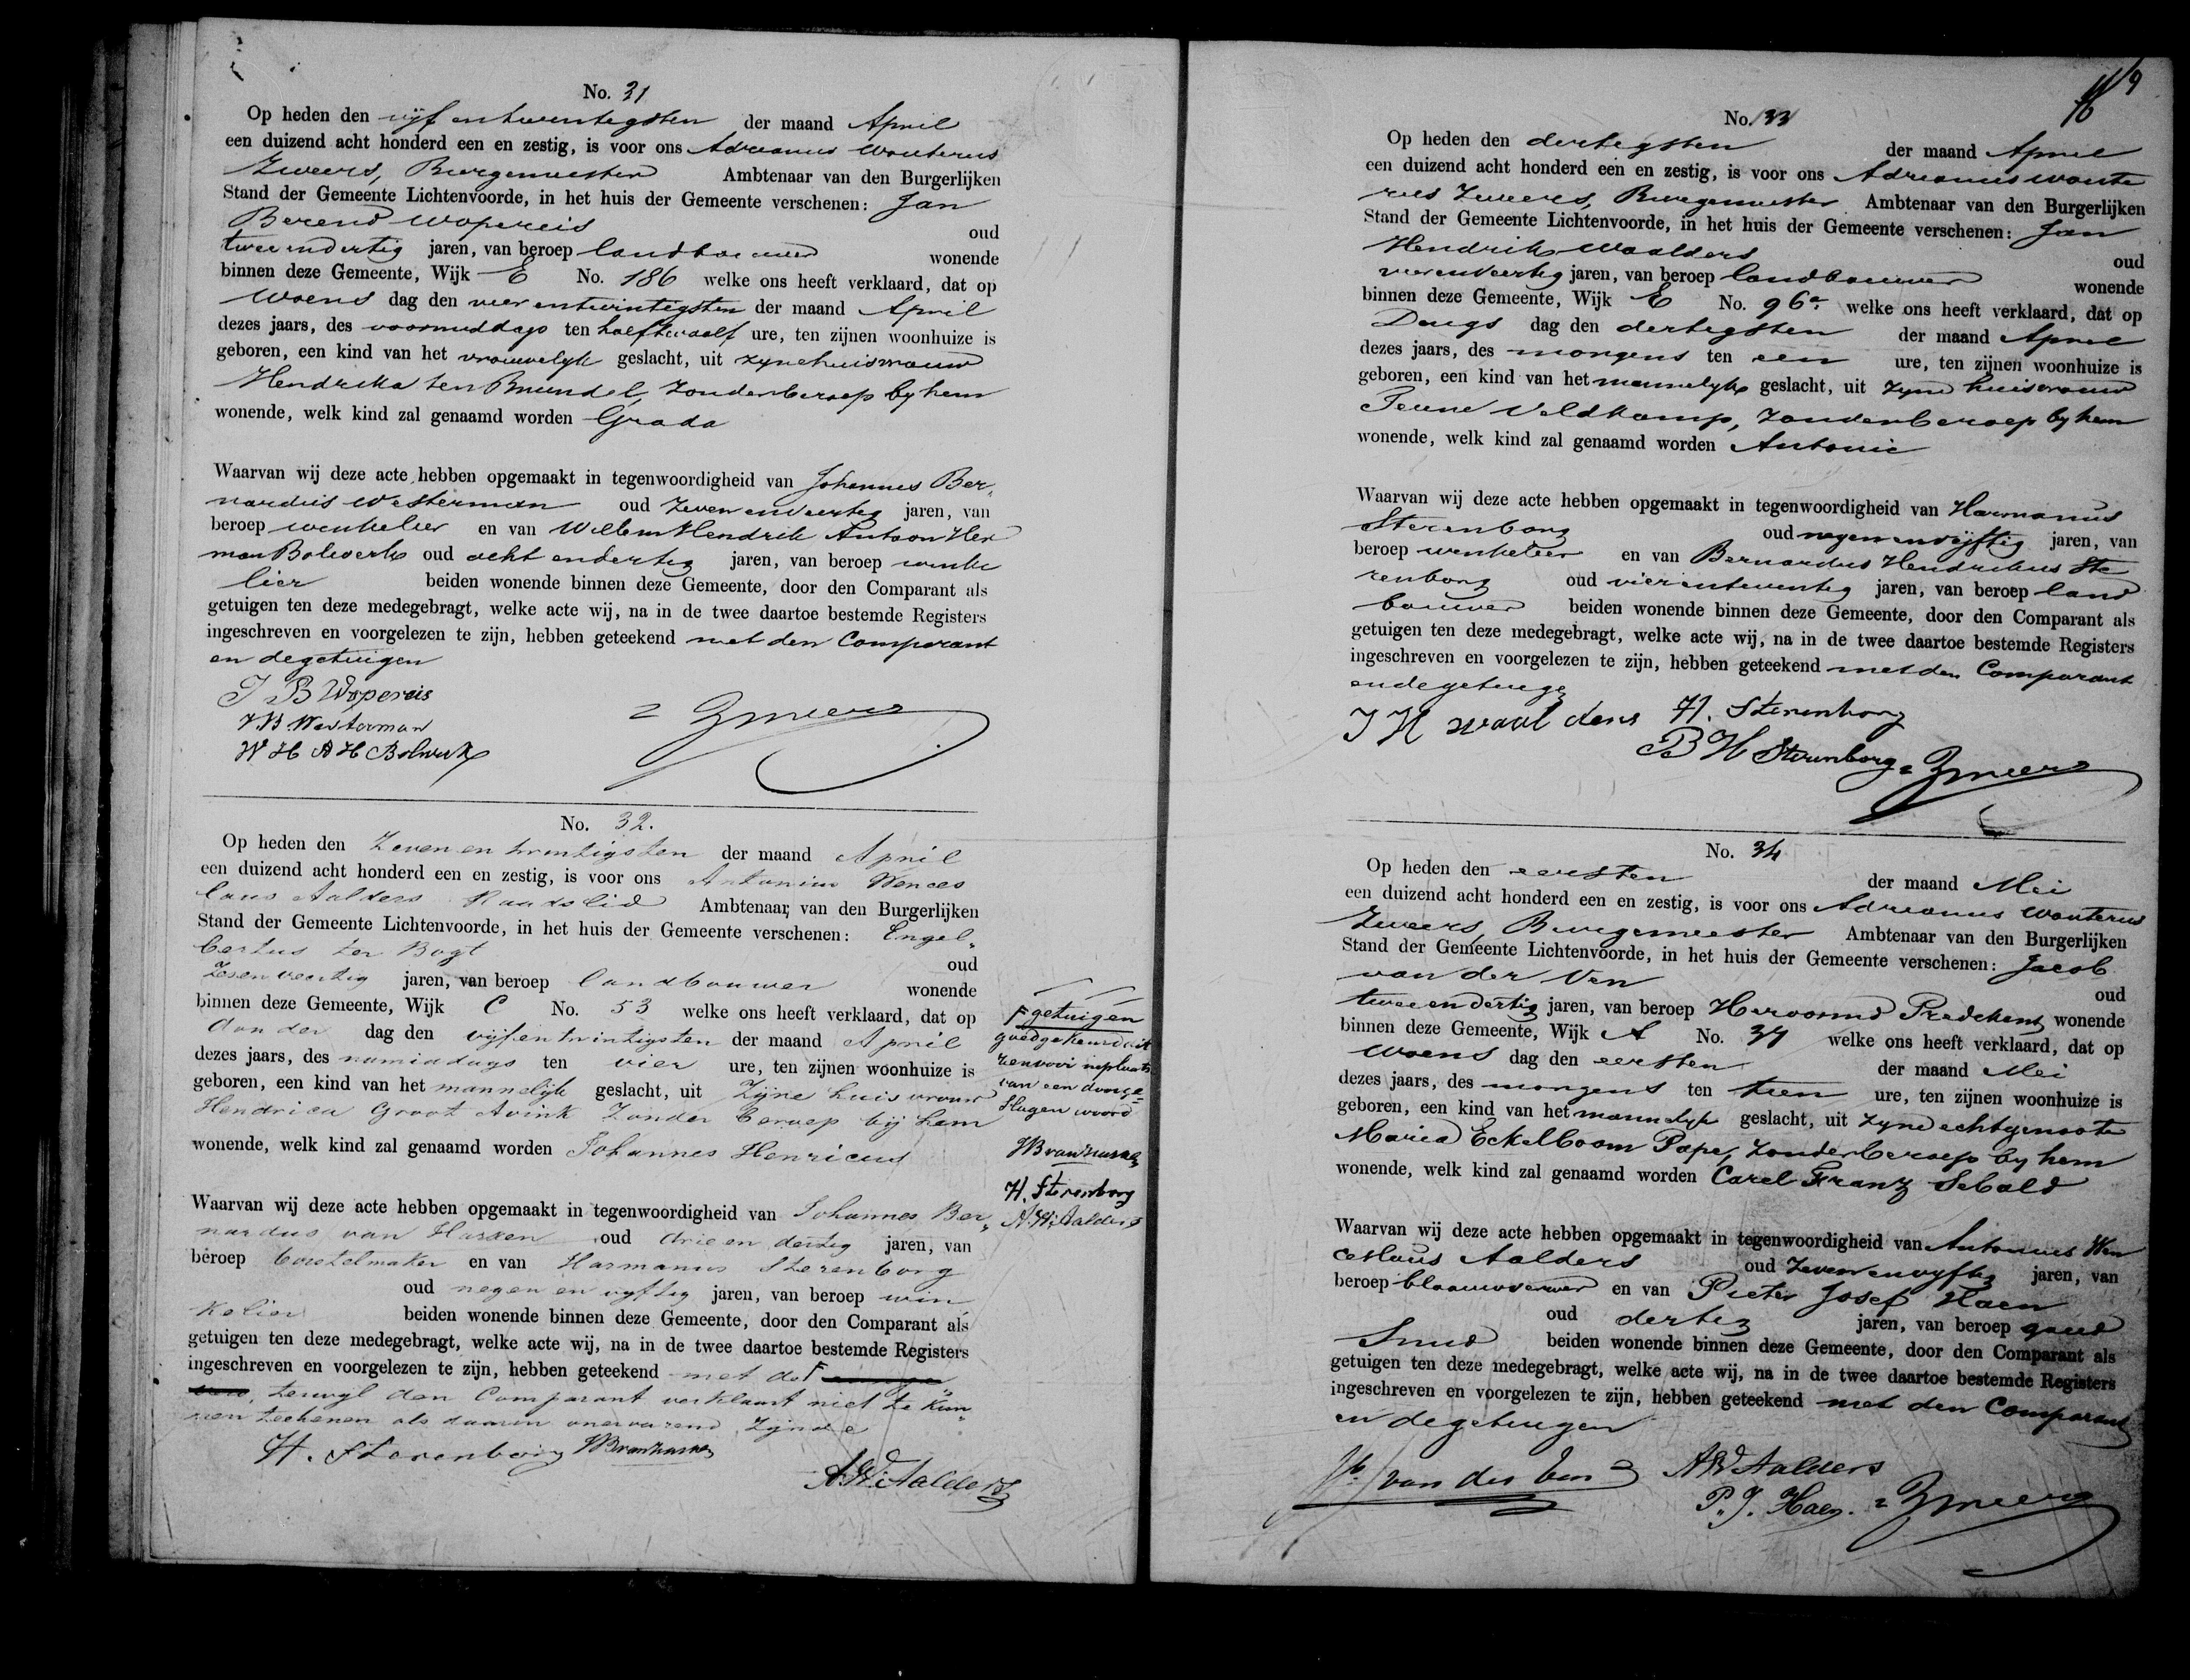 No. 31
Op heden den vijf en twentigsten der maand April
een duizend acht honderd een en zestig, is voor ons Adrianus Wouterus
Zweers, Burgemeester Ambtenaar van den Burgerlijken
Stand der Gemeente Lichtenvoorde, in het huis der Gemeente verschenen: Jan
Berend Wopereis oud
twee en dertig jaren, van beroep landbouwer wonende
binnen deze Gemeente, Wijk E No. 186 welke ons heeft verklaard, dat op
Woens dag den vier entwintigsten der maand April
dezes jaars, des voormiddags ten half twaalf ure, ten zijnen woonhuize is
geboren, een kind van het vrouwelyk geslacht, uit zyne huisvrouw
Hendrika ten Brundel, zonder beroep by hem
wonende, welk kind zal genaamd worden Grada
Waarvan wij deze acte hebben opgemaakt in tegenwoordigheid van Johannes Ber„
nardus Westerman oud zeven en veertig jaren, van
beroep winkelier en van Willem Hendrik Antoon Her
man Bolwerk oud acht en dertig jaren, van beroep winke
lier beiden wonende binnen deze Gemeente, door den Comparant als
getuigen ten deze medegebragt, welke acte wij, na in de twee daartoe bestemde Registers
ingeschreven en voorgelezen te zijn, hebben geteekend met den Comparant
en de getuigen
J B Wopereis
J. B. Westerman
W H A H Bolwerk
Zweers
No. 32.
Op heden den Zeven en twintigsten der maand April
een duizend acht honderd een en zestig, is voor ons Antonius Wences
laus Aalders Raadslid Ambtenaar, van den Burgerlijken
Stand der Gemeente Lichtenvoorde, in het huis der Gemeente verschenen: Engel„
bertus ter Bogt oud
Zesenveertig jaren, van beroep landbouwer wonende
binnen deze Gemeente, Wijk C No. 53 welke ons heeft verklaard, dat op
donder dag den vijfentwintigsten der maand April
dezes jaars, des namiddags ten vier ure, ten zijnen woonhuize is
geboren, een kind van het mannelijk geslacht, uit zijne huisvrouw
Hendrica Groot Avink Zonder beroep bij hem
wonende, welk kind zal genaamd worden Johannes Henricus
Waarvan wij deze acte hebben opgemaakt in tegenwoordigheid van Johannes Ber„
nardus van Harxen oud drie en dertig jaren, van
beroep borstelmaker en van Harmanus Sterenborg
oud negen en vyftig jaren, van beroep win
kelier beiden wonende binnen deze Gemeente, door den Comparant als
getuigen ten deze medegebragt, welke acte wij, na in de twee daartoe bestemde Registers
ingeschreven en voorgelezen te zijn, hebben geteekend met de F
terwyl den Comparant verklaart niet te kun„
nen teekenen als daarin onervarend zijnde
H. Sterenborg
A. W. Aalders
F getuigen
goedgekeurd dit
renvooi in plaats
van een doorge=
slagen woord
H. Sterenborg
A. W. Aalders
9
No. 33
Op heden den dertigsten der maand April
een duizend acht honderd een en zestig, is voor ons Adrianus Woute
rus Zweers, Burgemeester Ambtenaar van den Burgerlijken
Stand der Gemeente Lichtenvoorde, in het huis der Gemeente verschenen: Jan
Hendrik Waalders oud
vierenveertig jaren, van beroep landbouwer wonende
binnen deze Gemeente, Wijk E No. 96a welke ons heeft verklaard, dat op
Dings dag den dertigsten der maand April
dezes jaars, des morgens ten een ure, ten zijnen woonhuize is
geboren, een kind van het mannelyk geslacht, uit zyne huisvrouw
Veldkamp, zonder beroep by hem
wonende, welk kind zal genaamd worden Antonie
Waarvan wij deze acte hebben opgemaakt in tegenwoordigheid van Harmanus
Sterenborg oud negen en vyftig jaren, van
beroep winkelier en van Bernardus Hendrikus Ste
renborg oud vierentwentig jaren, van beroep land
bouwer beiden wonende binnen deze Gemeente, door den Comparant als
getuigen ten deze medegebragt, welke acte wij, na in de twee daartoe bestemde Registers
ingeschreven en voorgelezen te zijn, hebben geteekend met den Comparant
en de getuige
J H waal ders H. Sterenborg
B H Sterenborg Zweers
No. 34
Op heden den eersten der maand Mei
een duizend acht honderd een en zestig, is voor ons Adrianus Wouterus
Zweers, Burgemeester Ambtenaar van den Burgerlijken
Stand der Gemeente Lichtenvoorde, in het huis der Gemeente verschenen: Jacob
van der Ven oud
twee en dertig jaren, van beroep Hervormd Predekant wonende
binnen deze Gemeente, Wijk A No. 37 welke ons heeft verklaard, dat op
Woens dag den eersten der maand Mei
dezes jaars, des morgens ten tien ure, ten zijnen woonhuize is
geboren, een kind van het mannelyk geslacht, uit zyne echtgenoote
Maria Eckelboom Pape, zonder beroep by hem
wonende, welk kind zal genaamd worden Carel Franz Sebald
Waarvan wij deze acte hebben opgemaakt in tegenwoordigheid van Antonius Wen
ceslaus Aalders oud zeven en vyftig jaren, van
beroep blaauwverwer en van Pieter Josef Haen
oud dertig jaren, van beroep goud
Smid beiden wonende binnen deze Gemeente, door den Comparant als
getuigen ten deze medegebragt, welke acte wij, na in de twee daartoe bestemde Registers
ingeschreven en voorgelezen te zijn, hebben geteekend met den Comparant
en de getuigen
van der Ven A W Aalders
P. J. Haen. Zweers